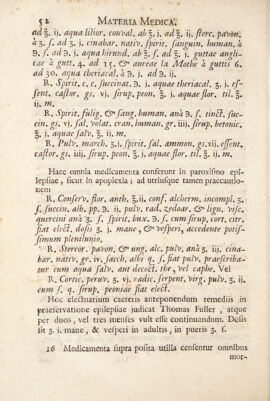 52 MATERIA MEDICA.
ad ℥. ij. aqua lilior. conval. ab ℥. j. ad ℥. ij. sterc. pavon.
à ʒ. s. ad ʒ. j. cinabar. nativ. spirit. sanguin. human. à
℈. s. ad ℈. j. aqua hirund. ab ℥. s. ad ℥. j. guttae angli-
cae à gutt. 4. ad 15. & aureae la Mothe à guttis 6.
ad 30. aqua theriacal. à ℈. j. ad ℈. ij.
R. Spirit. c. c. succinat. ℈. j. aquae theriacal. ʒ. j. es-
sent. castor. gs. vj. sirup. peon. ℥. j. aquae flor. til. ℥.
ij. m.
R. Spirit. fulig. & sang. human. anà ℈. s. tinct. suc-
cin. gs. vj. sal. volat. cran. human. gr. iiij. sirup. betonic.
℥. j. aquae salv. ℥. ij. m.
R. Pulv. march. ʒ. j. spirit. sal. ammon. gs. xij. essent.
castor. gs. iiij. sirup. peon. ℥. j. aquae flor. til. ℥. ij. m.
Haec omnia medicamenta conferunt in paroxismo epi-
lepsiae, sicut in apoplexia; ad utriusque tamen praecautio-
nem
R. Conserv. flor. anth. ℥. ij. conf. alcherm. incompl. ʒ.
s. succin. alb. pp. ℈. ij. pulv. rad. zedoar. & lign. visc.
quercini anà ʒ. s. spirit. bux. ℈. s. cum sirup. cort. citr.
fiat elect. dosis ʒ. j. mane, & vesperi, accedente potis-
simum plenilunio.
R. Stercor. pavon. & ung. alc. pulv. anà ʒ. iij. cina-
bar. nativ. gr. iv. sacch. albi q. s. fiat pulv. praescriba-
tur cum aqua salv. aut decoct. the, vel caphe. Vel
R. Cortic. peruv. ʒ. vj. radic. serpent. virg. pulv. ʒ. ij.
cum s. q. sirup. peoniae fiat elect.
Hoc electuarium caeteris anteponendum remediis in
praeservatione epilepsiae judicat Thomas Fuller, atque
per duos, vel tres menses vult esse continuandum. Dosis
sit ʒ. j. mane, & vesperi in adultis, in pueris ʒ. s.
26 Medicamenta supra posita utilia censentur omnibus
mor-